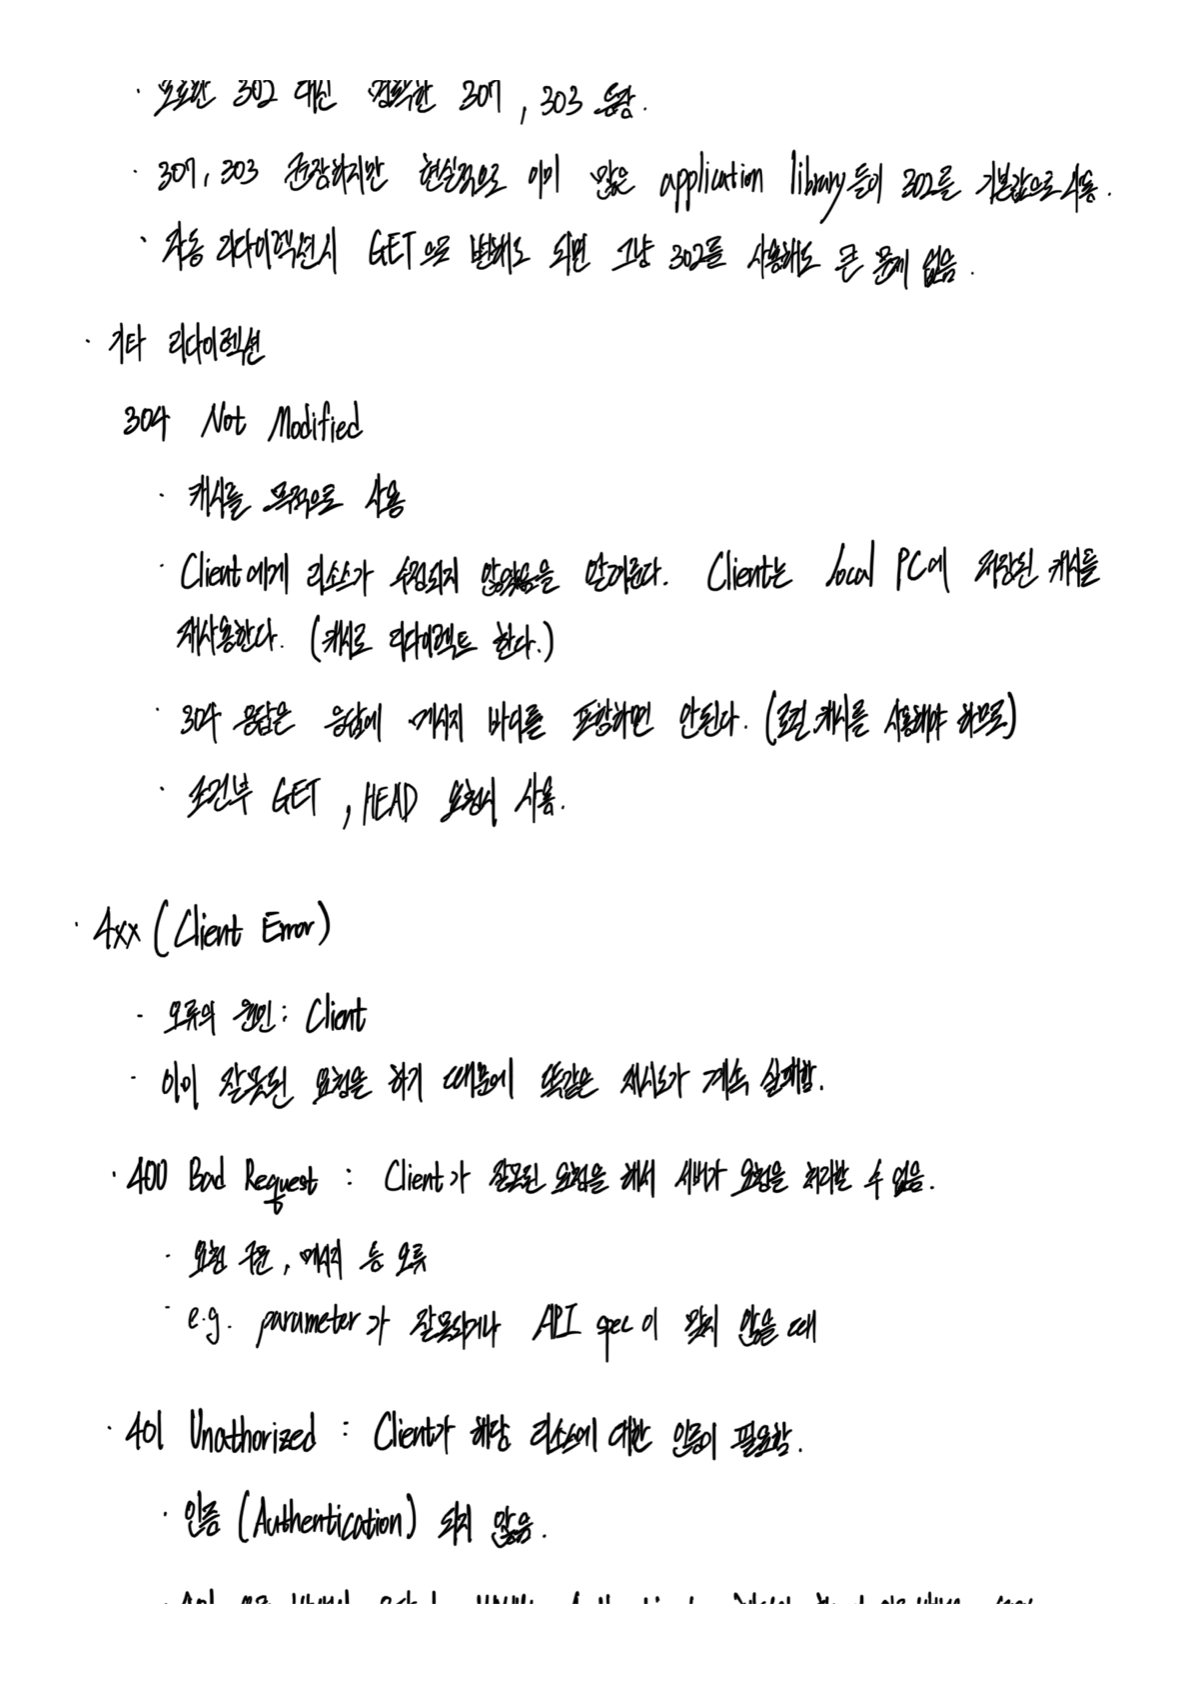 · 모호한 302 대신 명확한 307, 303 등장.
· 307, 303 권장하지만 현실적으로 이미 많은 application library들이 302를 기본값으로 사용.
· 자동 리다이렉션시 GET으로 변해도 되면 그냥 302를 사용해도 큰 문제 없음.
· 기타 리다이렉션
304 Not Modified
· 캐시를 목적으로 사용
· Client에게 리소스가 수정되지 않았음을 알려준다. Client는 local PC에 저장된 캐시를
재사용한다. (캐시로 리다이렉트 한다.)
· 304 응답은 응답에 메시지 바디를 포함하면 안된다. (로컬 캐시를 사용해야 하므로)
· 조건부 GET, HEAD 요청시 사용.
· 4xx (Client Error)
- 오류의 원인 : Client
- 이미 잘못된 요청을 하기 때문에 똑같은 재시도가 계속 실패함.
· 400 Bad Request : Client가 잘못된 요청을 해서 서버가 요청을 처리할 수 없음.
· 요청 구문, 메시지 등 오류
- e.g. parameter가 잘못되거나 API spec이 맞지 않을 때
· 401 Unathorized : Client가 해당 리소스에 대한 인증이 필요함.
· 인증 (Authentication) 되지 않음.